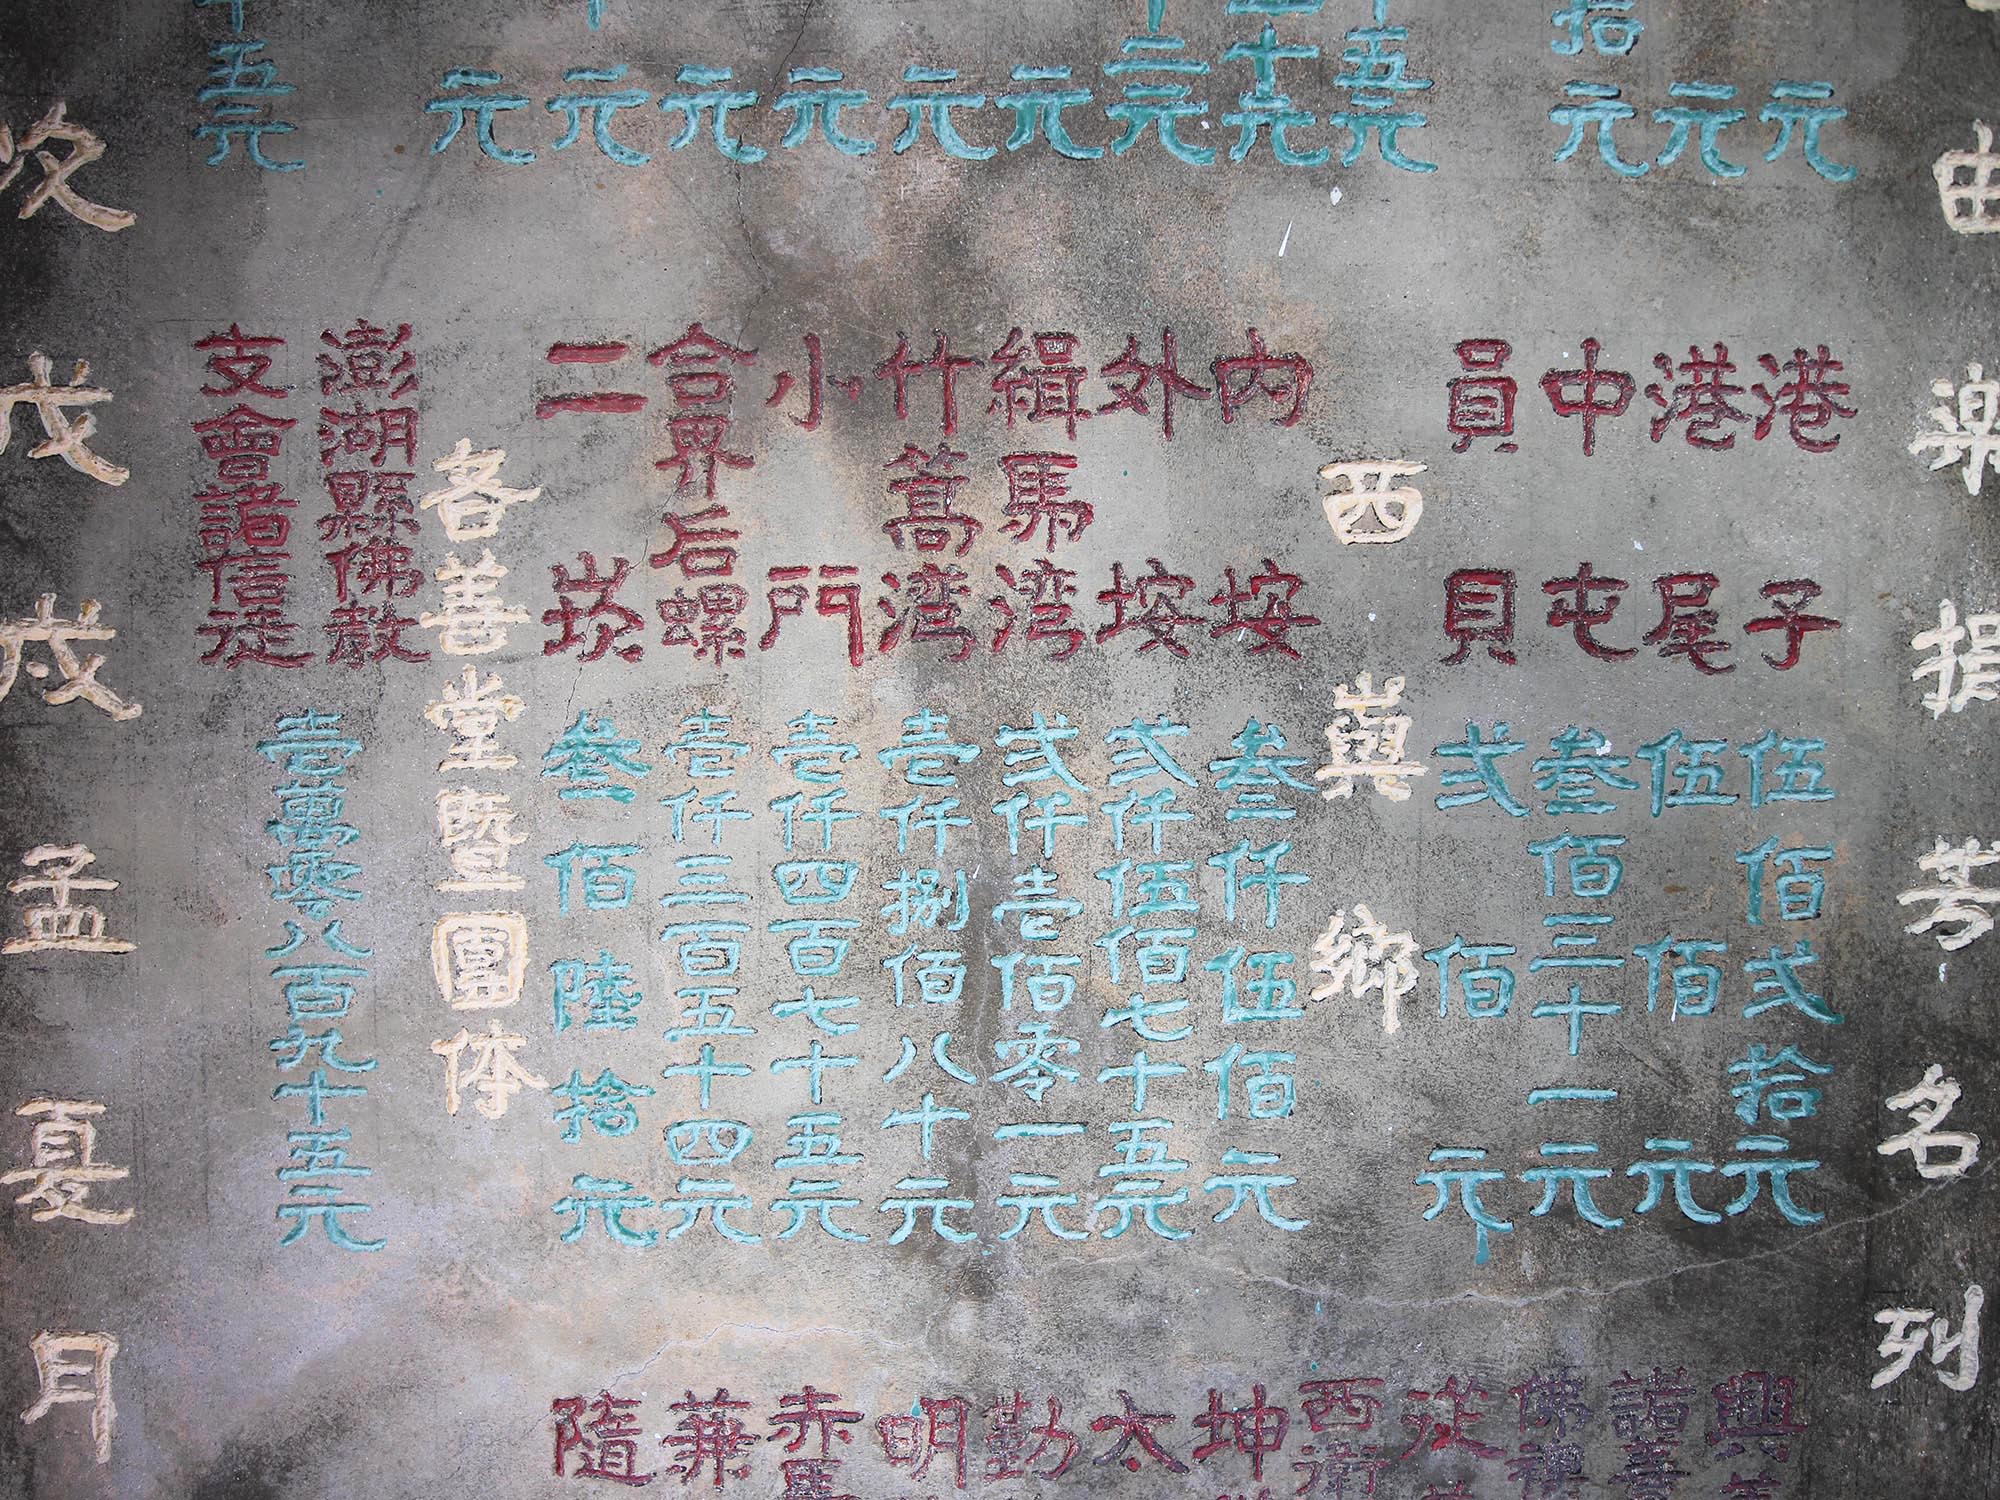 由樂捐芳名列
拾元
元
元
五元
十元
二元
元
元
元
元
元
元
十五元
港子 伍佰弍拾元
港尾 伍佰元
中屯 叁佰三十一元
員貝 弍佰元
西嶼鄉
内垵 叁仟伍佰元
外垵 弍仟伍佰七十五元
緝馬湾 弍仟壹佰零一元
竹篙湾 壱仟捌佰八十元
小門 壱仟四百七十五元
合界后螺 壱仟三百五十四元
二崁 叁佰陸拾元
各善堂暨團体
澎湖縣佛教
支會諸信徒 壱萬零八百九十五元
興善
諸善
佛禪
從
西衛
坤
太
勤
明
赤馬
兼
隨
次戊戌孟夏月